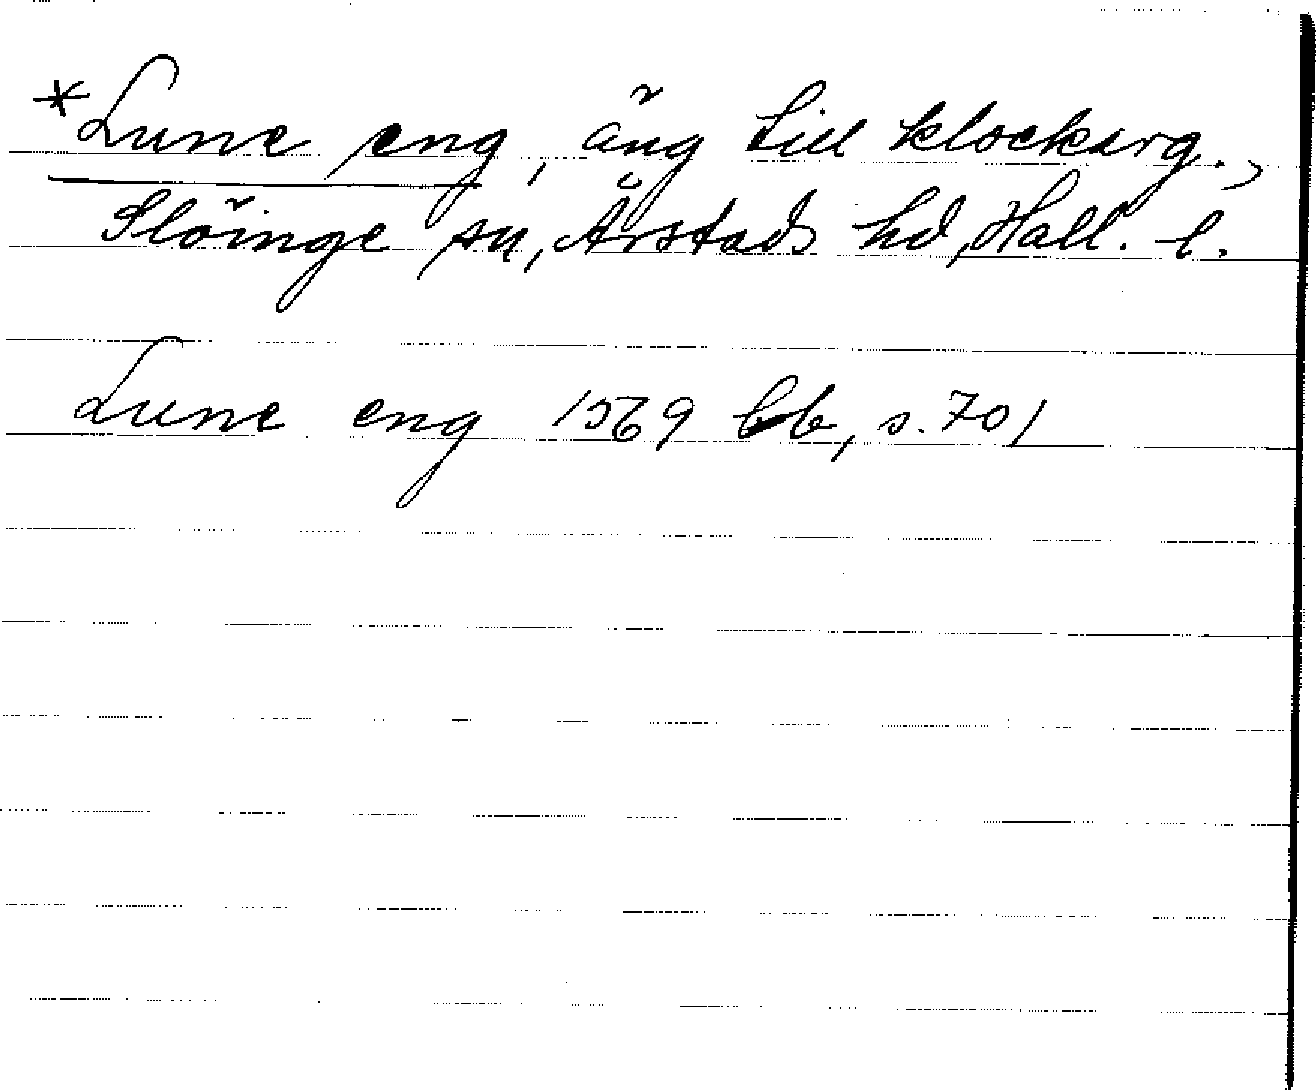 *Lune eng, äng till klockarg.,
Slöinge sn, Årstads hd, Hall. l.
Lune eng 1569 bb, s. 701